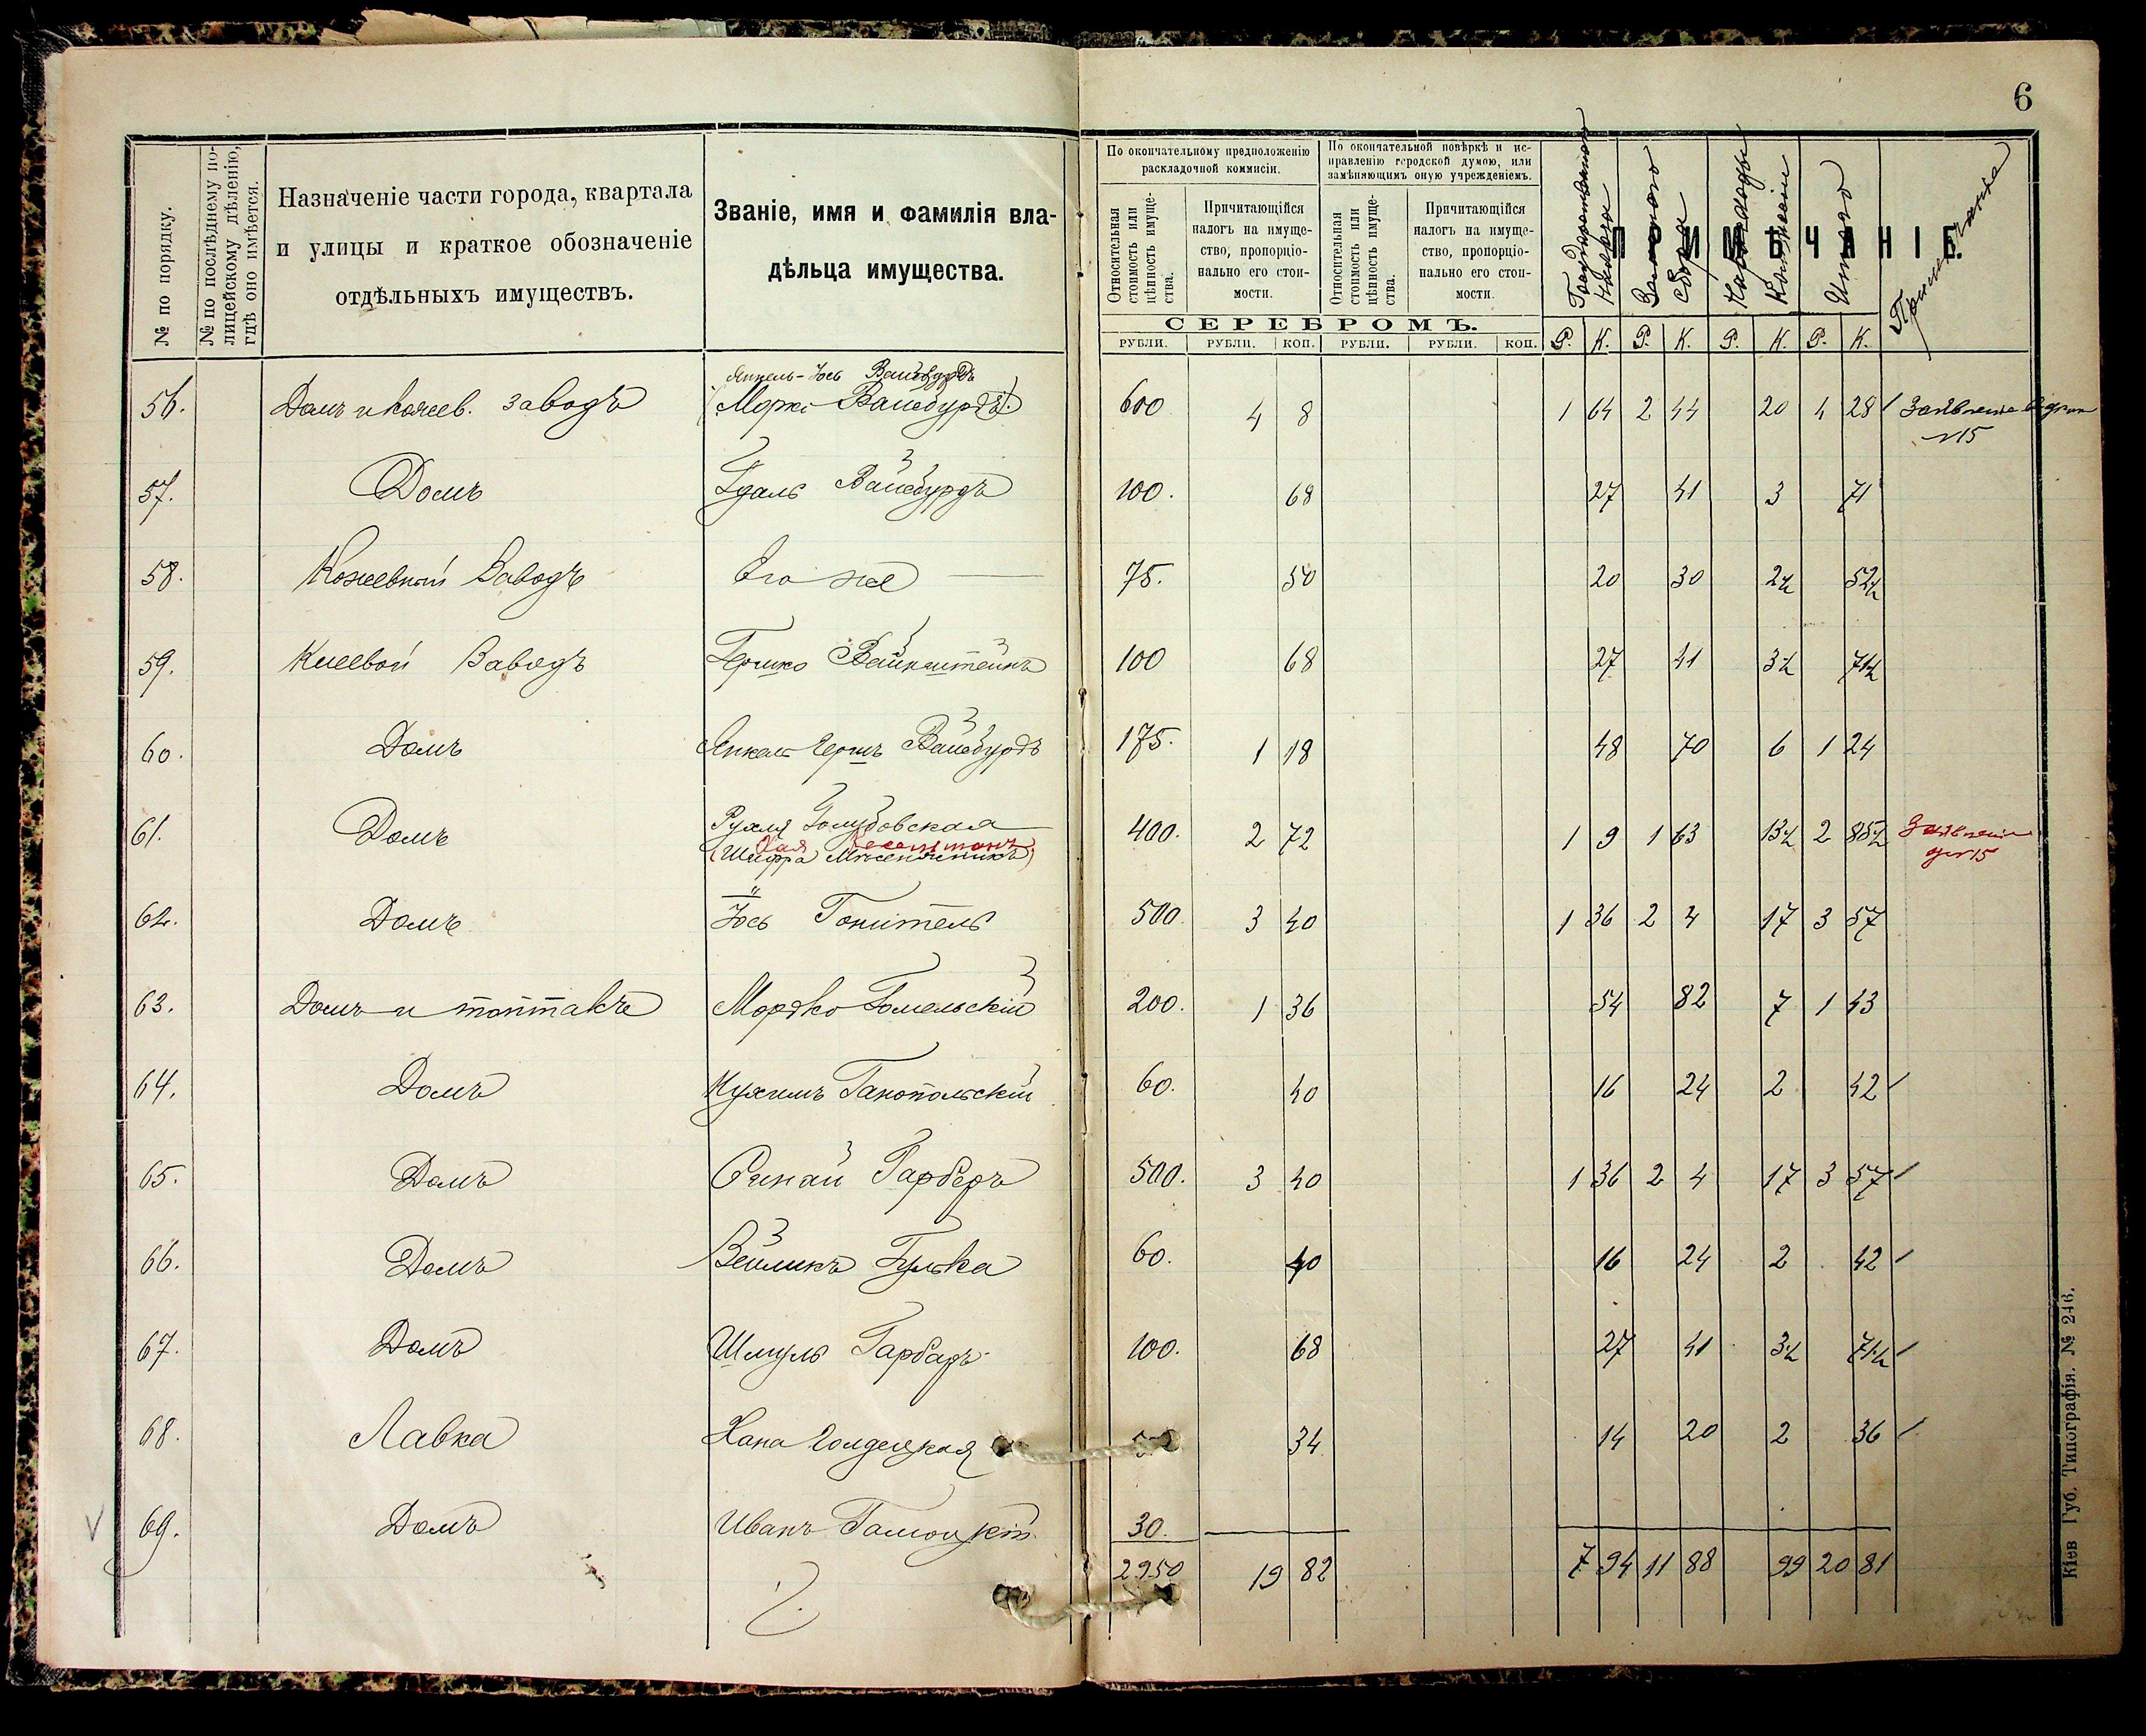 6
№ по порядку.
№ по послѣднему по-
лицейскому дѣленію,
гдѣ оно имѣется.
Назначеніе части города, квартала
и улицы и краткое обозначеніе
отдѣльныхъ имуществъ.
Званіе, имя и фамилія вла-
дѣльца имущества.
По окончательному предположенію
раскладочной коммисіи.
По окончательной повѣркѣ и ис-
правленію городской думою, или
замѣняющимъ оную учрежденіемъ.
Относительная
стоимость или
цѣнность имуще-
ства.
Причитающійся
налогъ на имуще-
ство, пропорціо-
нально его стои-
мости.
Относительная
стоимость или
цѣнность имуще-
ства.
Причитающійся
налогъ на имуще-
ство, пропорціо-
нально его стои-
мости.
ПРИМѢЧАНІЕ.
Земского
сбора
Итого
СЕРЕБРОМЪ.
РУБЛИ. РУБЛИ. КОП. РУБЛИ. РУБЛИ. КОП. Р. К. Р. К. Р. К. Р. К.
Янкель-Іось Вайсбурдъ
56. Домъ и кожев. заводъ Вайсбурдъ 600 4 8 1 64 2 44 20 4 28
№15
57. Домъ Вайсбурдъ 100. 68 27 41 3 71
58. Кожевный Заводъ Его же 75. 50 20 30 2½ 52½
59. Клеевой Заводъ Гершко Вайнштейнъ 100 68 27 41 3½ 71½
60. Домъ Гершъ Вайсбурдъ 175. 1 18 48 70 6 1 24
61. Домъ Рухля Голубовская 400. 2 72 1 9 1 63 13½ 2 85½ Заявленіе
(Шифра
№15
62. Домъ Іось Гонитель 500 3 40 1 36 2 4 17 3 57
63. Домъ и топтакъ Мордко Гомельскій 200. 1 36 54 82 7 1 43
64. Домъ Нухимъ Ганопольскій 60. 40 16 24 2 42
65. Домъ Синай Гарберъ 500. 3 40 1 36 2 4 17 3 57
66. Домъ Гулька 60. 40 16 24 2 42
67. Домъ Шмуль Гарбаръ 100. 68 27 41 3½ 71½
68. Лавка Хана 34 14 20 2 36
69. Домъ Иванъ 30.
2950 19 82 7 94 11 88 99 20 81
Кіев Губ. Типографія. № 246.